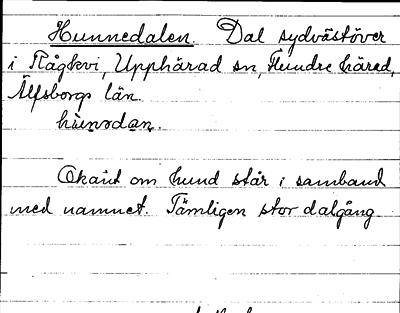 Hunnedalen. Dal sydvästöver
i Någkvi, Upphärad sn, Flundre härad,
Älfsborgs län.
hùnədan.
Okänt om hund står i samband
med namnet. Tämligen stor dalgång